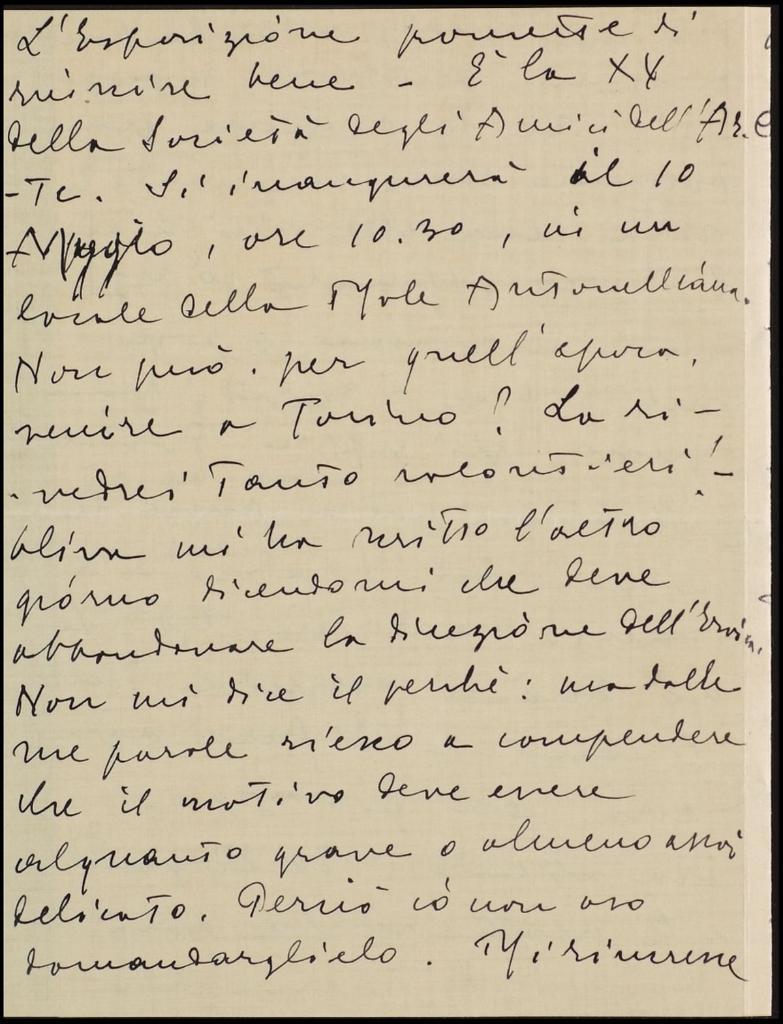 L'Esposizione promette di
riuscire bene - È la XX
della Società degli Amici dell'Ar
-te. Si inaugurerà il 10
Maggio, ore 10.30, in un
locale della Mole Antonelliana.
Non può, per quell'epoca,
venire a Torino? La ri-
-vedrei tanto volontieri! -
Oliva mi ha scritto l'altro
giorno dicendomi che deve
abbandonare la direzione dell'
Non mi dice il perchè: ma dalle
sue parole riesco a comprendere
che il motivo deve essere
alquanto grave o almeno assai
delicato. Perciò io non oso
domandarglielo. Mi rincresce